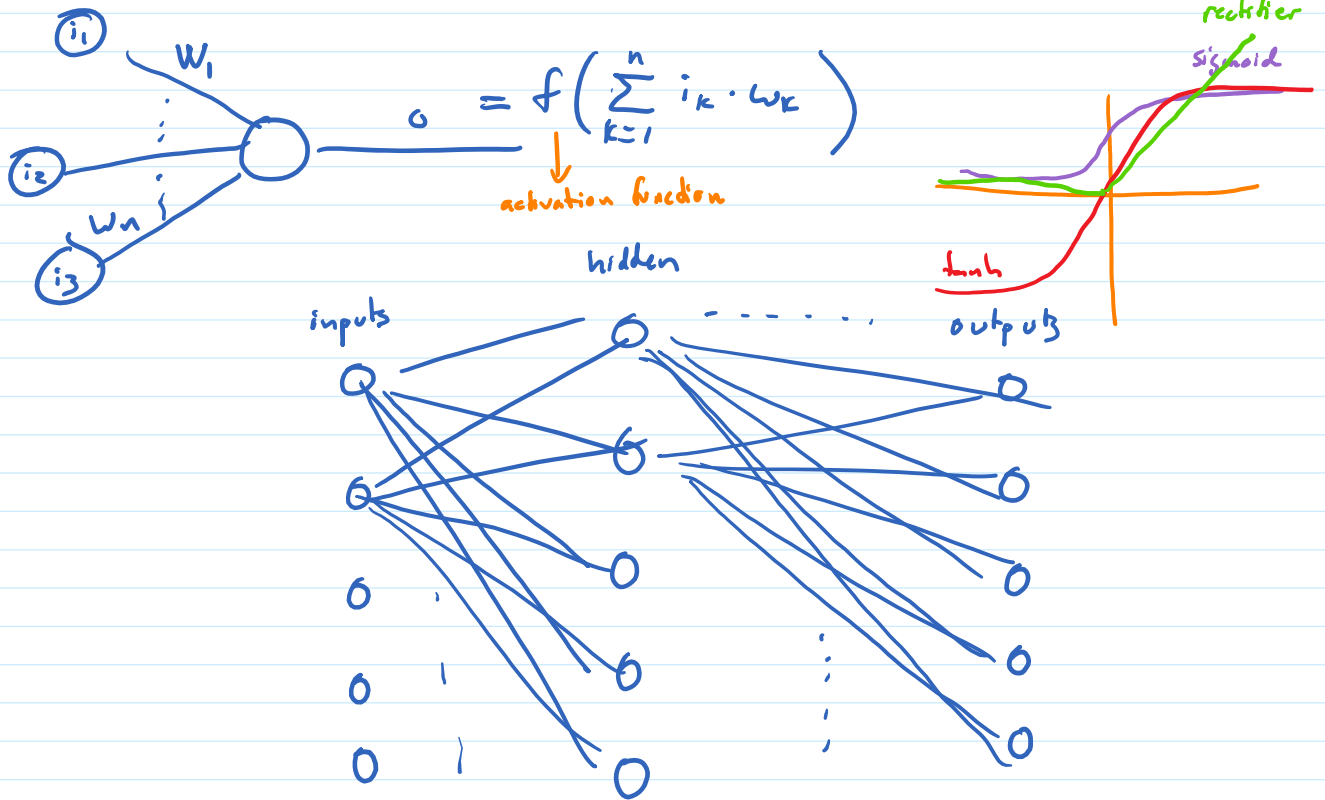 i₁
W₁
i₂
Wn
i₃
o = f( n ∑ k=1 iₖ · ωₖ )
activation function
rectifier
sigmoid
tanh
hidden
inputs
outputs